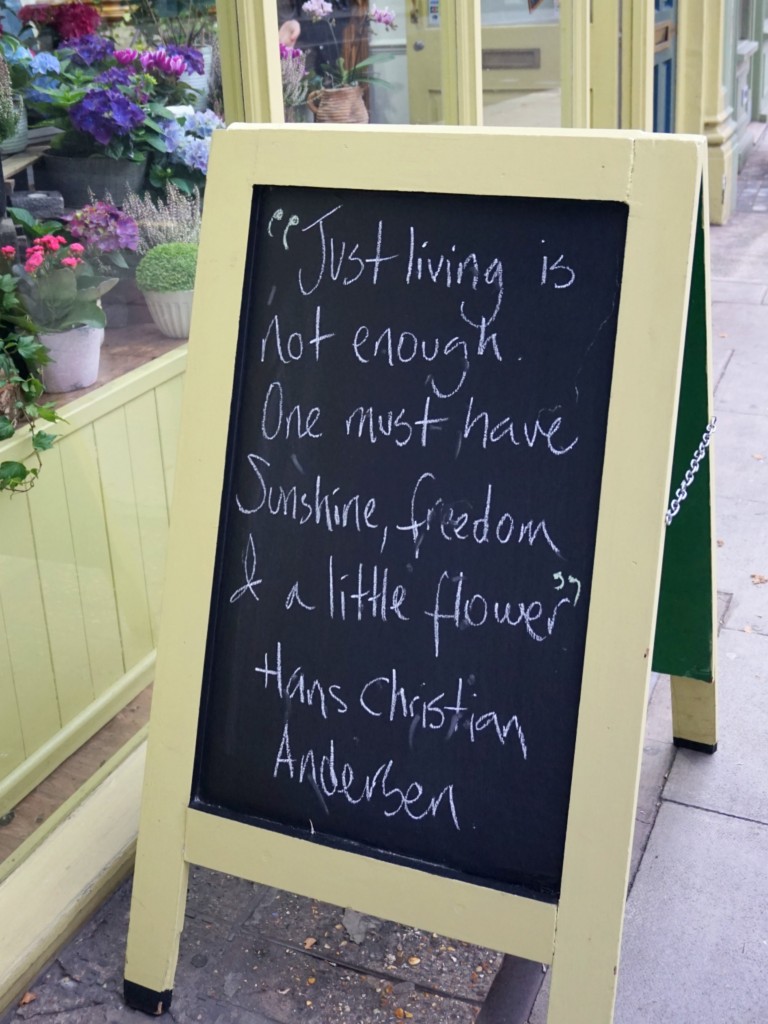 “Just living is
not enough.
One must have
Sunshine, freedom
& a little flower”
Hans Christian
Andersen.